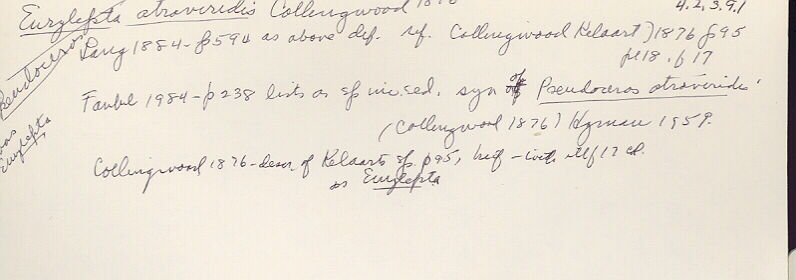 Eurylepta atroviridis Collingwood 1876
4.2, 3.9.1
Lang 1884 - p594 as above def. ref. Collingwood (Kelaart) 1876 p95
pl 18. p 17
Pseudoceros
was Eurylepta
Faubel 1984 - p238 lists as sp inc. sed. syn of Pseudoceros atroviridis
(Collingwood 1876) Hyman 1959.
Collingwood 1876 - descr. of Kelaarts sp. p95, brief -
as Eurylepta